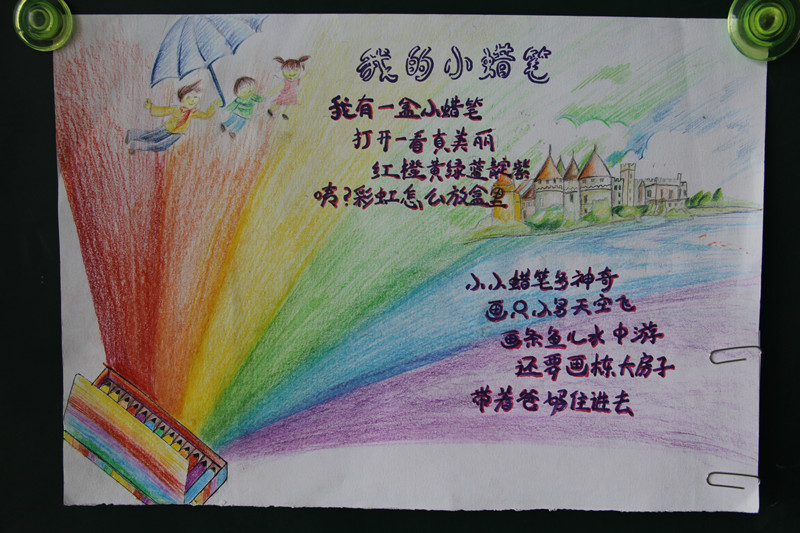 我的小蜡笔
我有一盒小蜡笔
打开一看真美丽
红橙黄绿蓝靛紫
唷?彩虹怎么放盒里
小小蜡笔多神奇
画只小鸟天空飞
画条鱼儿水中游
还要画栋大房子
带着爸妈住进去